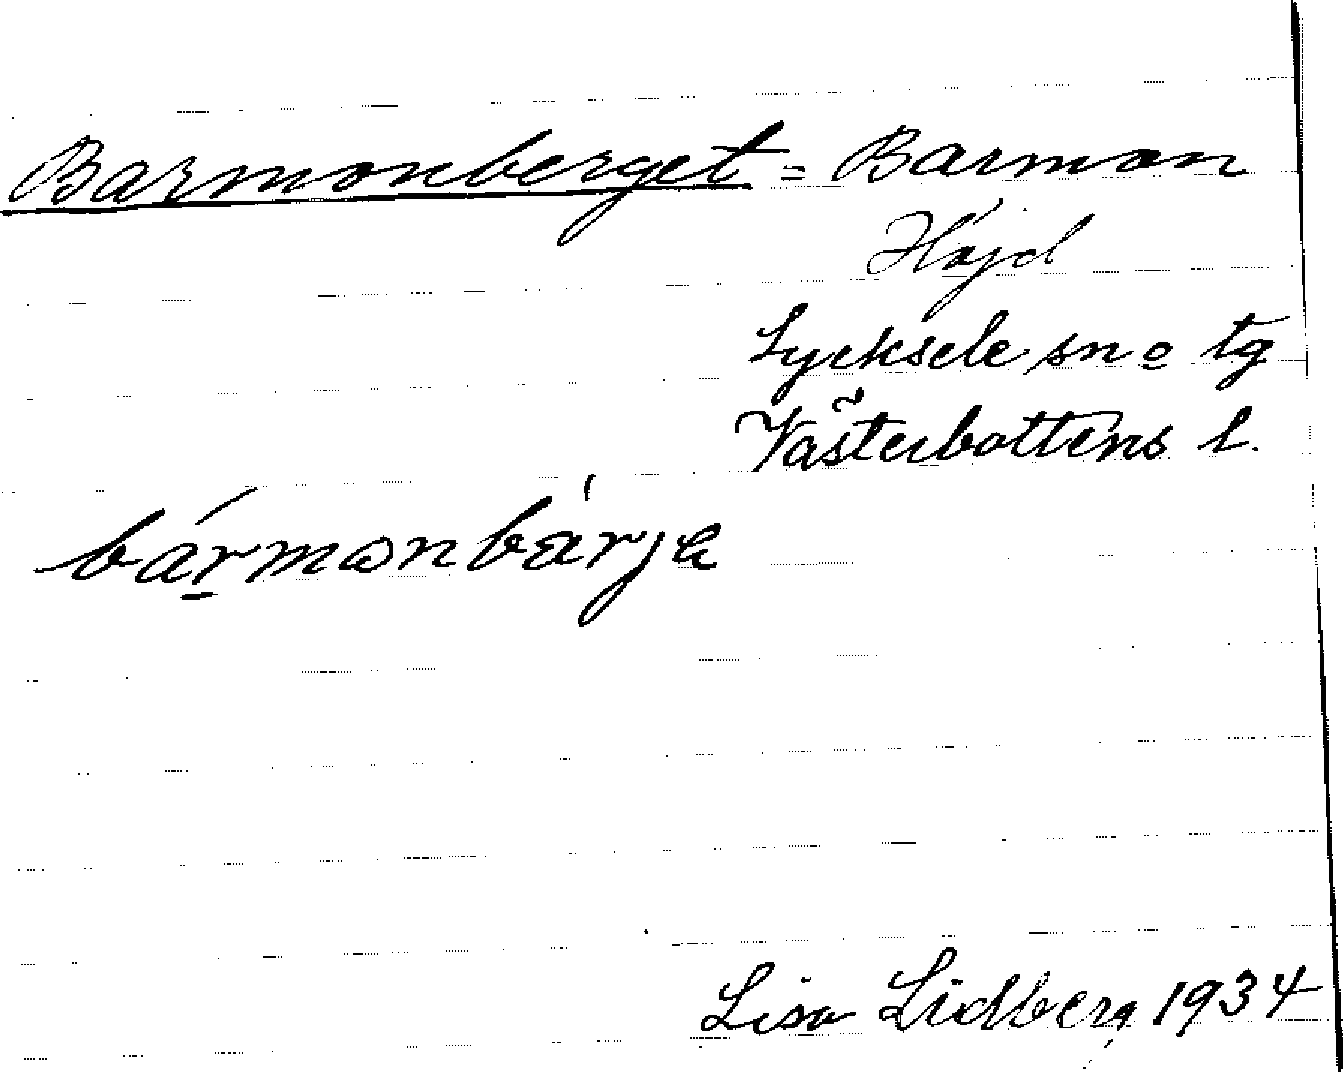 Barmonberget = Barmon
Höjd
Lycksele sn o tg
Västerbottens l.
bármonbárja
Lisa Lidberg 1934